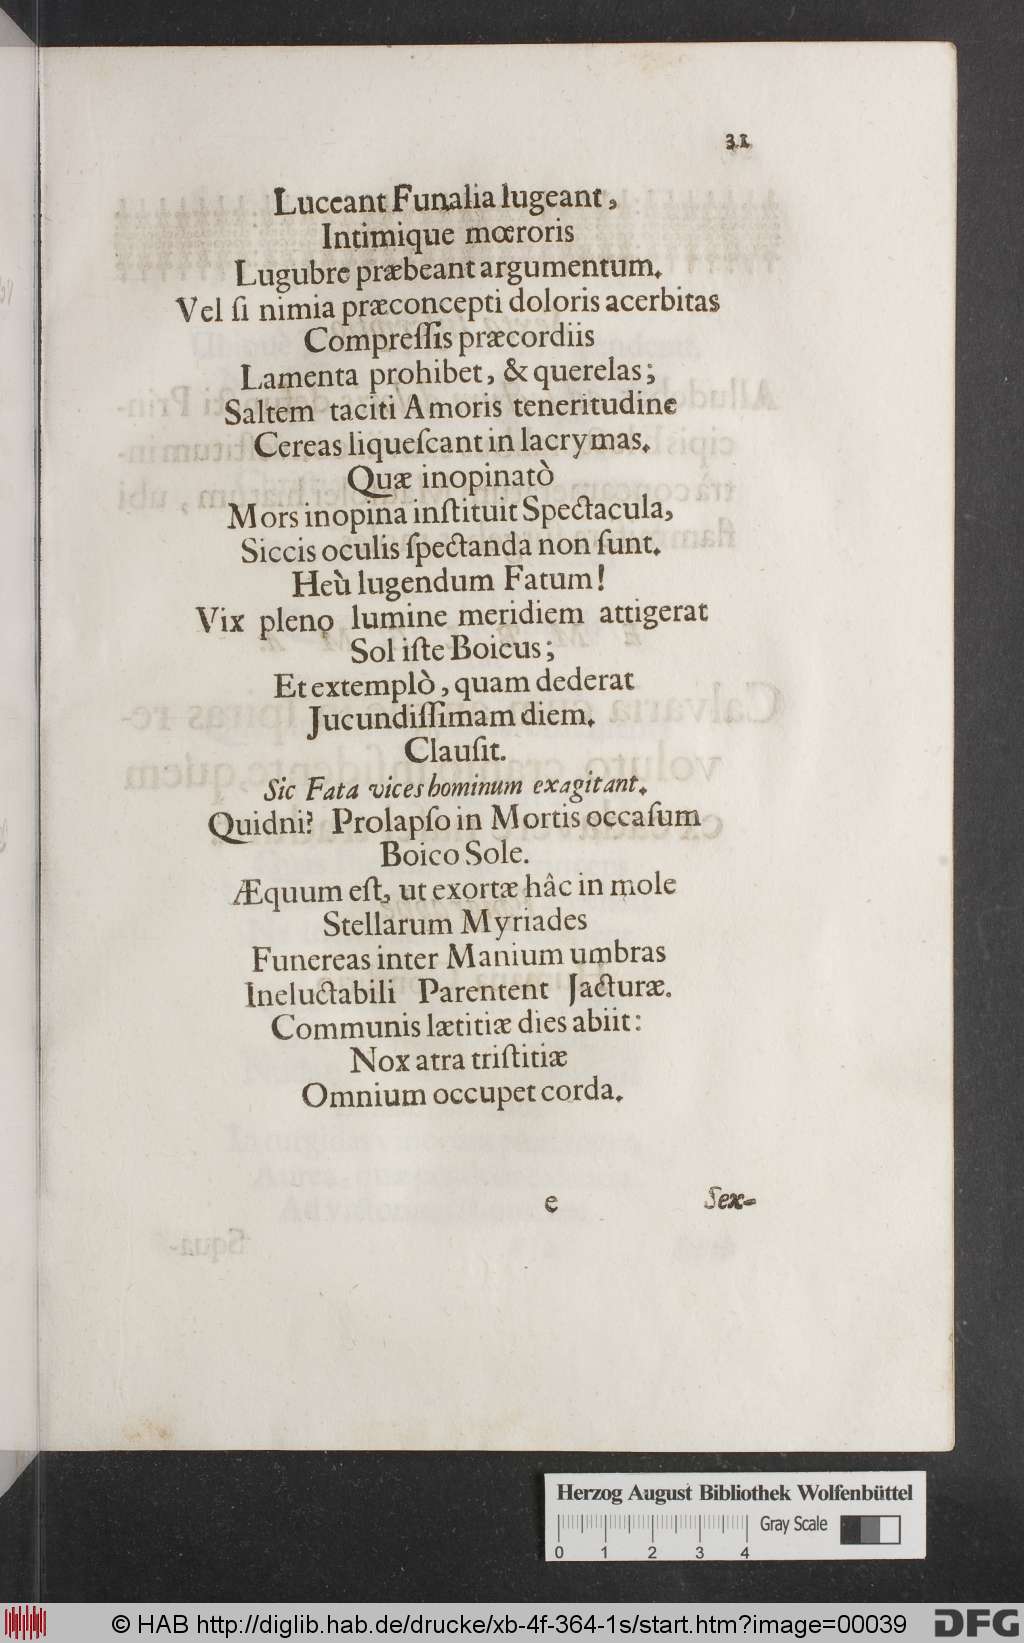 31
Luceant Funalia lugeant,
Intimique mœroris
Lugubre præbeant argumentum.
Vel ſi nimia præconcepti doloris acerbitas
Compreſſis præcordiis
Lamenta prohibet, & querelas;
Saltem taciti Amoris teneritudine
Cereas liqueſcant in lacrymas.
Quæ inopinatò
Mors inopina inſtituit Spectacula,
Siccis oculis ſpectanda non ſunt.
Heù lugendum Fatum!
Vix pleno lumine meridiem attigerat
Sol iſte Boicus;
Et extemplò, quam dederat
Jucundiſſimam diem.
Clauſit.
Sic Fata vices hominum exagitant.
Quidni? Prolapſo in Mortis occaſum
Boico Sole.
Æquum eſt, ut exortæ hâc in mole
Stellarum Myriades
Funereas inter Manium umbras
Ineluctabili Parentent Jacturæ.
Communis lætitiæ dies abiit:
Nox atra triſtitiæ
Omnium occupet corda.
e Sex-
Herzog August Bibliothek Wolfenbüttel
Gray Scale
0 1 2 3 4
© HAB http://diglib.hab.de/drucke/xb-4f-364-1s/start.htm?image=00039 DFG